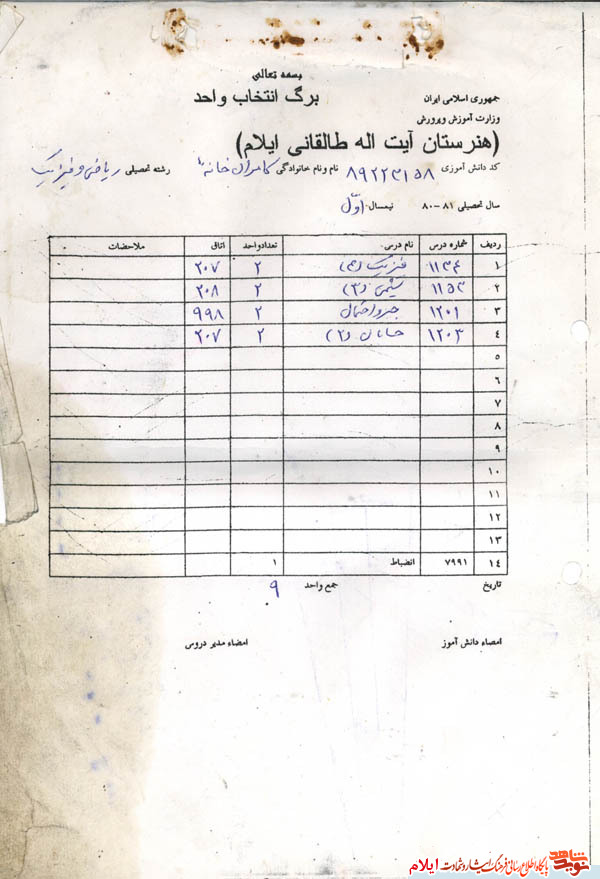 بسمه تعالی
جمهوری اسلامی ایران
برگ انتخاب واحد
وزارت آموزش و پرورش
(هنرستان آیت اله طالقانی ایلام)
کد دانش آموزی ۸۹۲۲۳۱۵۸ نام و نام خانوادگی کامران خانه رشته تحصیلی ریاضی و فیزیک
سال تحصیلی ۸۱ - ۸۰ نیمسال اول
ردیف شماره درس نام درس تعداد واحد اتاق ملاحضات
۱ ۱۱۳۴ فیزیک (۳) ۲ ۲۰۷
۲ ۱۱۵۳ شیمی (۳) ۲ ۲۰۸
۳ ۱۲۰۱ جبر و احتمال ۲ ۹۹۸
۴ ۱۲۰۳ حسابان (۲) ۲ ۲۰۷
۵
۶
۷
۸
۹
۱۰
۱۱
۱۲
۱۳
۱۴ ۷۹۹۱ انضباط ۱
تاریخ جمع واحد ۹
امضاء دانش آموز امضاء مدیر دروس
نوید شاهد پایگاه اطلاع رسانی فرهنگ ایثار و شهادت ایلام